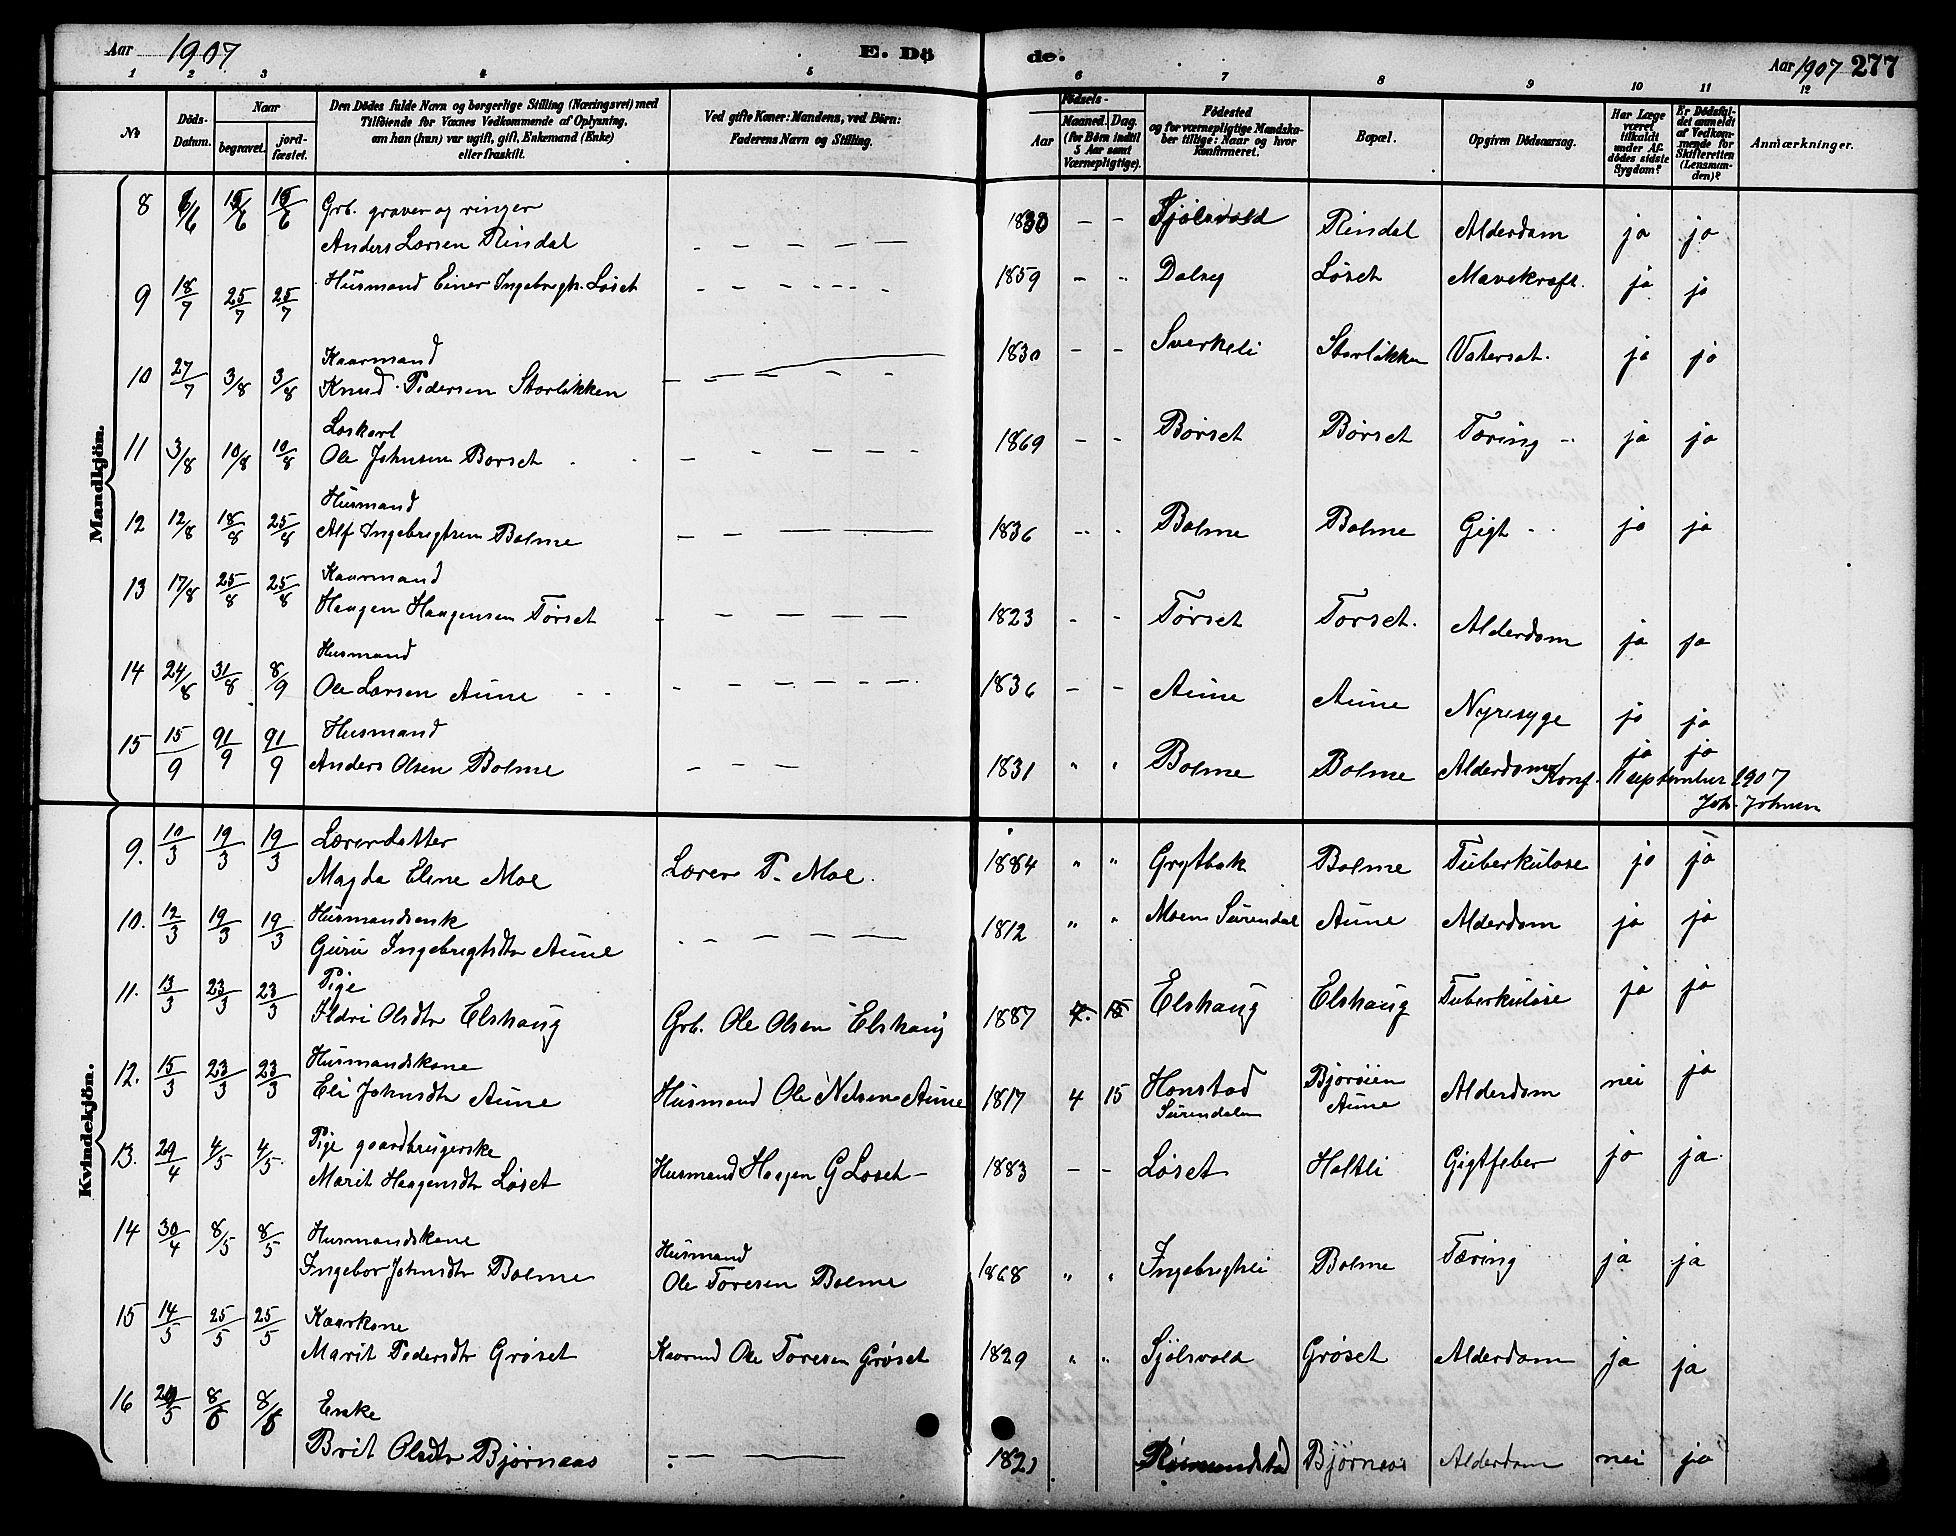 Aar 1907 E. Dö de. Aar 1907 277
1 2 3 4 5 6 7 8 9 10 11 12
No
Döds-Datum.
Naar
begravet.
jord-fæstet.
Den Dödes fulde Navn og borgerlige Stilling (Næringsvei) med
Tilföiende for Voxnes Vedkommende af Oplysning,
om han (hun) var ugift, gift, Enkemand (Enke)
eller fraskilt.
Ved gifte Koner: Mandens, ved Börn:
Faderens Navn og Stilling.
Födsels-
Aar
Maaned. Dag.
(for Börn indtil
5 Aar samt
Værnepligtige).
Födested
og for værnepligtige Mandska-
ber tillige: Naar og hvor
Konfirmeret.
Bopæl.
Opgiven Dödsaarsag.
Har Læge
været
tilkaldt
under Af-
dödes sidste
Sygdom?
Er Dödsfal-
det anmeldt
af Vedkom-
mende for
Skifteretten
(Lensman-
den)?
Anmærkninger.
Mandkjön.
8 6/6 Grb. graver og ringer
Anders Larsen Rindal - - - - - 1830 - - Sjølsvold Rindal Alderdom ja ja
9 18/7 25/7 25/7 Husmand Einer Ingebrigts. Løset - - - - - 1859 - - Dalseg Løset Mavekræft. ja ja
10 27/7 3/8 3/8 Kaarmand
Knud Pedersen Storlikken - - - - - 1830 - - Sverkeli Storlikken Vatersot. ja ja
11 3/8 10/8 10/8 Løskarl
Ole Johnsen Børset - - - - - 1869 - - Børset Børset Tæring ja ja
12 12/8 18/8 25/8 Husmand
Alf Ingebrigtsen Bolme - - - - 1836 - - Bolme Bolme Gigt ja ja
13 17/8 25/8 25/8 Kaarmand
Haagen Haagensen Tørset - - - - - 1823 - - Tørset Torset. Alderdom ja ja
14 24/8 31/8 8/9 Husmand
Ole Larsen Aune - - - - - - 1836 - - Aune Aune Nyresyge ja ja
15 15/9 21/9 21/9 Husmand
Anders Olsen Bolme - - - 1831 " " Bolme Bolme Alderdom ja ja
Konf. 11 september 1907
Joh. Johnsen
Kvindekjön.
9. 10/3 19/3 19/3 Lærerdatter
Magda Eline Moe Lærer P. Moe. 1884 " " Grytbak Bolme Tuberkulose ja ja
10. 12/3 19/3 19/3 Husmandsenk
Guru Ingebrigtsdtr Aune - - - - - 1812 " " Moen Surendal Aune Alderdom ja ja
11. 13/3 23/3 23/3 Pige
Ildri Olsdtr Elshaug Grb. Ole Olsen Elshaug 1887 4. 15 Elshaug Elshaug Tuberkulose ja ja
12. 15/3 23/3 23/3 Husmandskone
Eli Johnsdtr Aune Husmand Ole Nilsen Aune 1817 4 15 Honstad
Surendalen Bjørøien
Aune Alderdom nei ja
13. 29/4 4/5 4/5. Pige gaardbrugerske
Marit Haagensdtr Løset Husmand Haagen G Løset 1883 - - Løset Holtli Gigtfeber ja ja
14 30/4 8/5 8/5 Husmandskone
Ingebor Johnsdtr Bolme Husmand
Ole Toresen Bolme 1868 " " Ingebrigtsli Bolme Tæring ja ja
15 14/5 25/5 25/5 Kaarkone
Marit Pedersdtr Grøset Kaarmd Ole Toresen Grøset 1829 " " Sjølsvold Grøset Alderdom ja ja
16 8/6 8/6 Enke
Brit Olsdtr Bjørnaas - - - Rømundstad Bjørnaas Alderdom nei ja